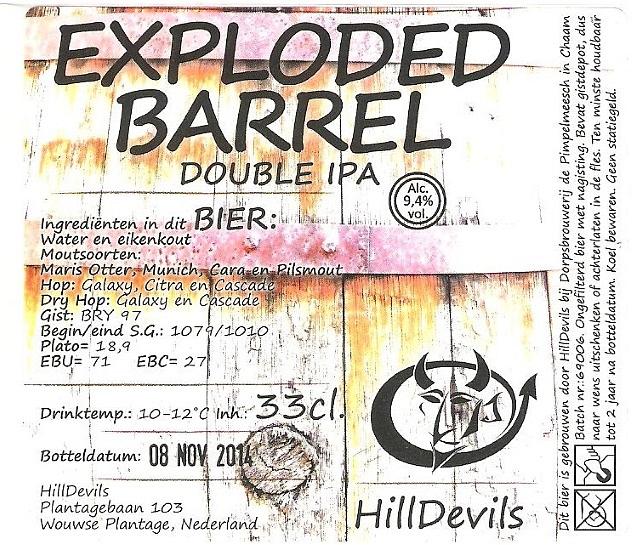 EXPLODED
BARREL
DOUBLE IPA
Alc.
9,4%
vol.
Ingrediënten in dit BIER:
Water en eikenkout
Moutsoorten:
Maris Otter, Munich, Cara en Pilsmout
Hop: Galaxy, Citra en Cascade
Dry Hop: Galaxy en Cascade
Gist: BRY 97
Begin/eind S.G.: 1079/1010
Plato= 18,9
EBU= 71 EBC= 27
Drinktemp.: 10-12°C Inh.: 33cl.
Botteldatum: 08 NOV 2014
HillDevils
Plantagebaan 103
Wouwse Plantage, Nederland
HillDevils
Dit bier is gebrouwen door HillDevils bij Dorpsbrouwerij de Pimpelmeesch in Chaam
Batch nr.:69006. Ongefilterd bier met nagisting. Bevat gistdepot, dus
naar wens uitschenken of achterlaten in de fles. Ten minste houdbaar
tot 2 jaar na botteldatum. Koel bewaren. Geen statiegeld.